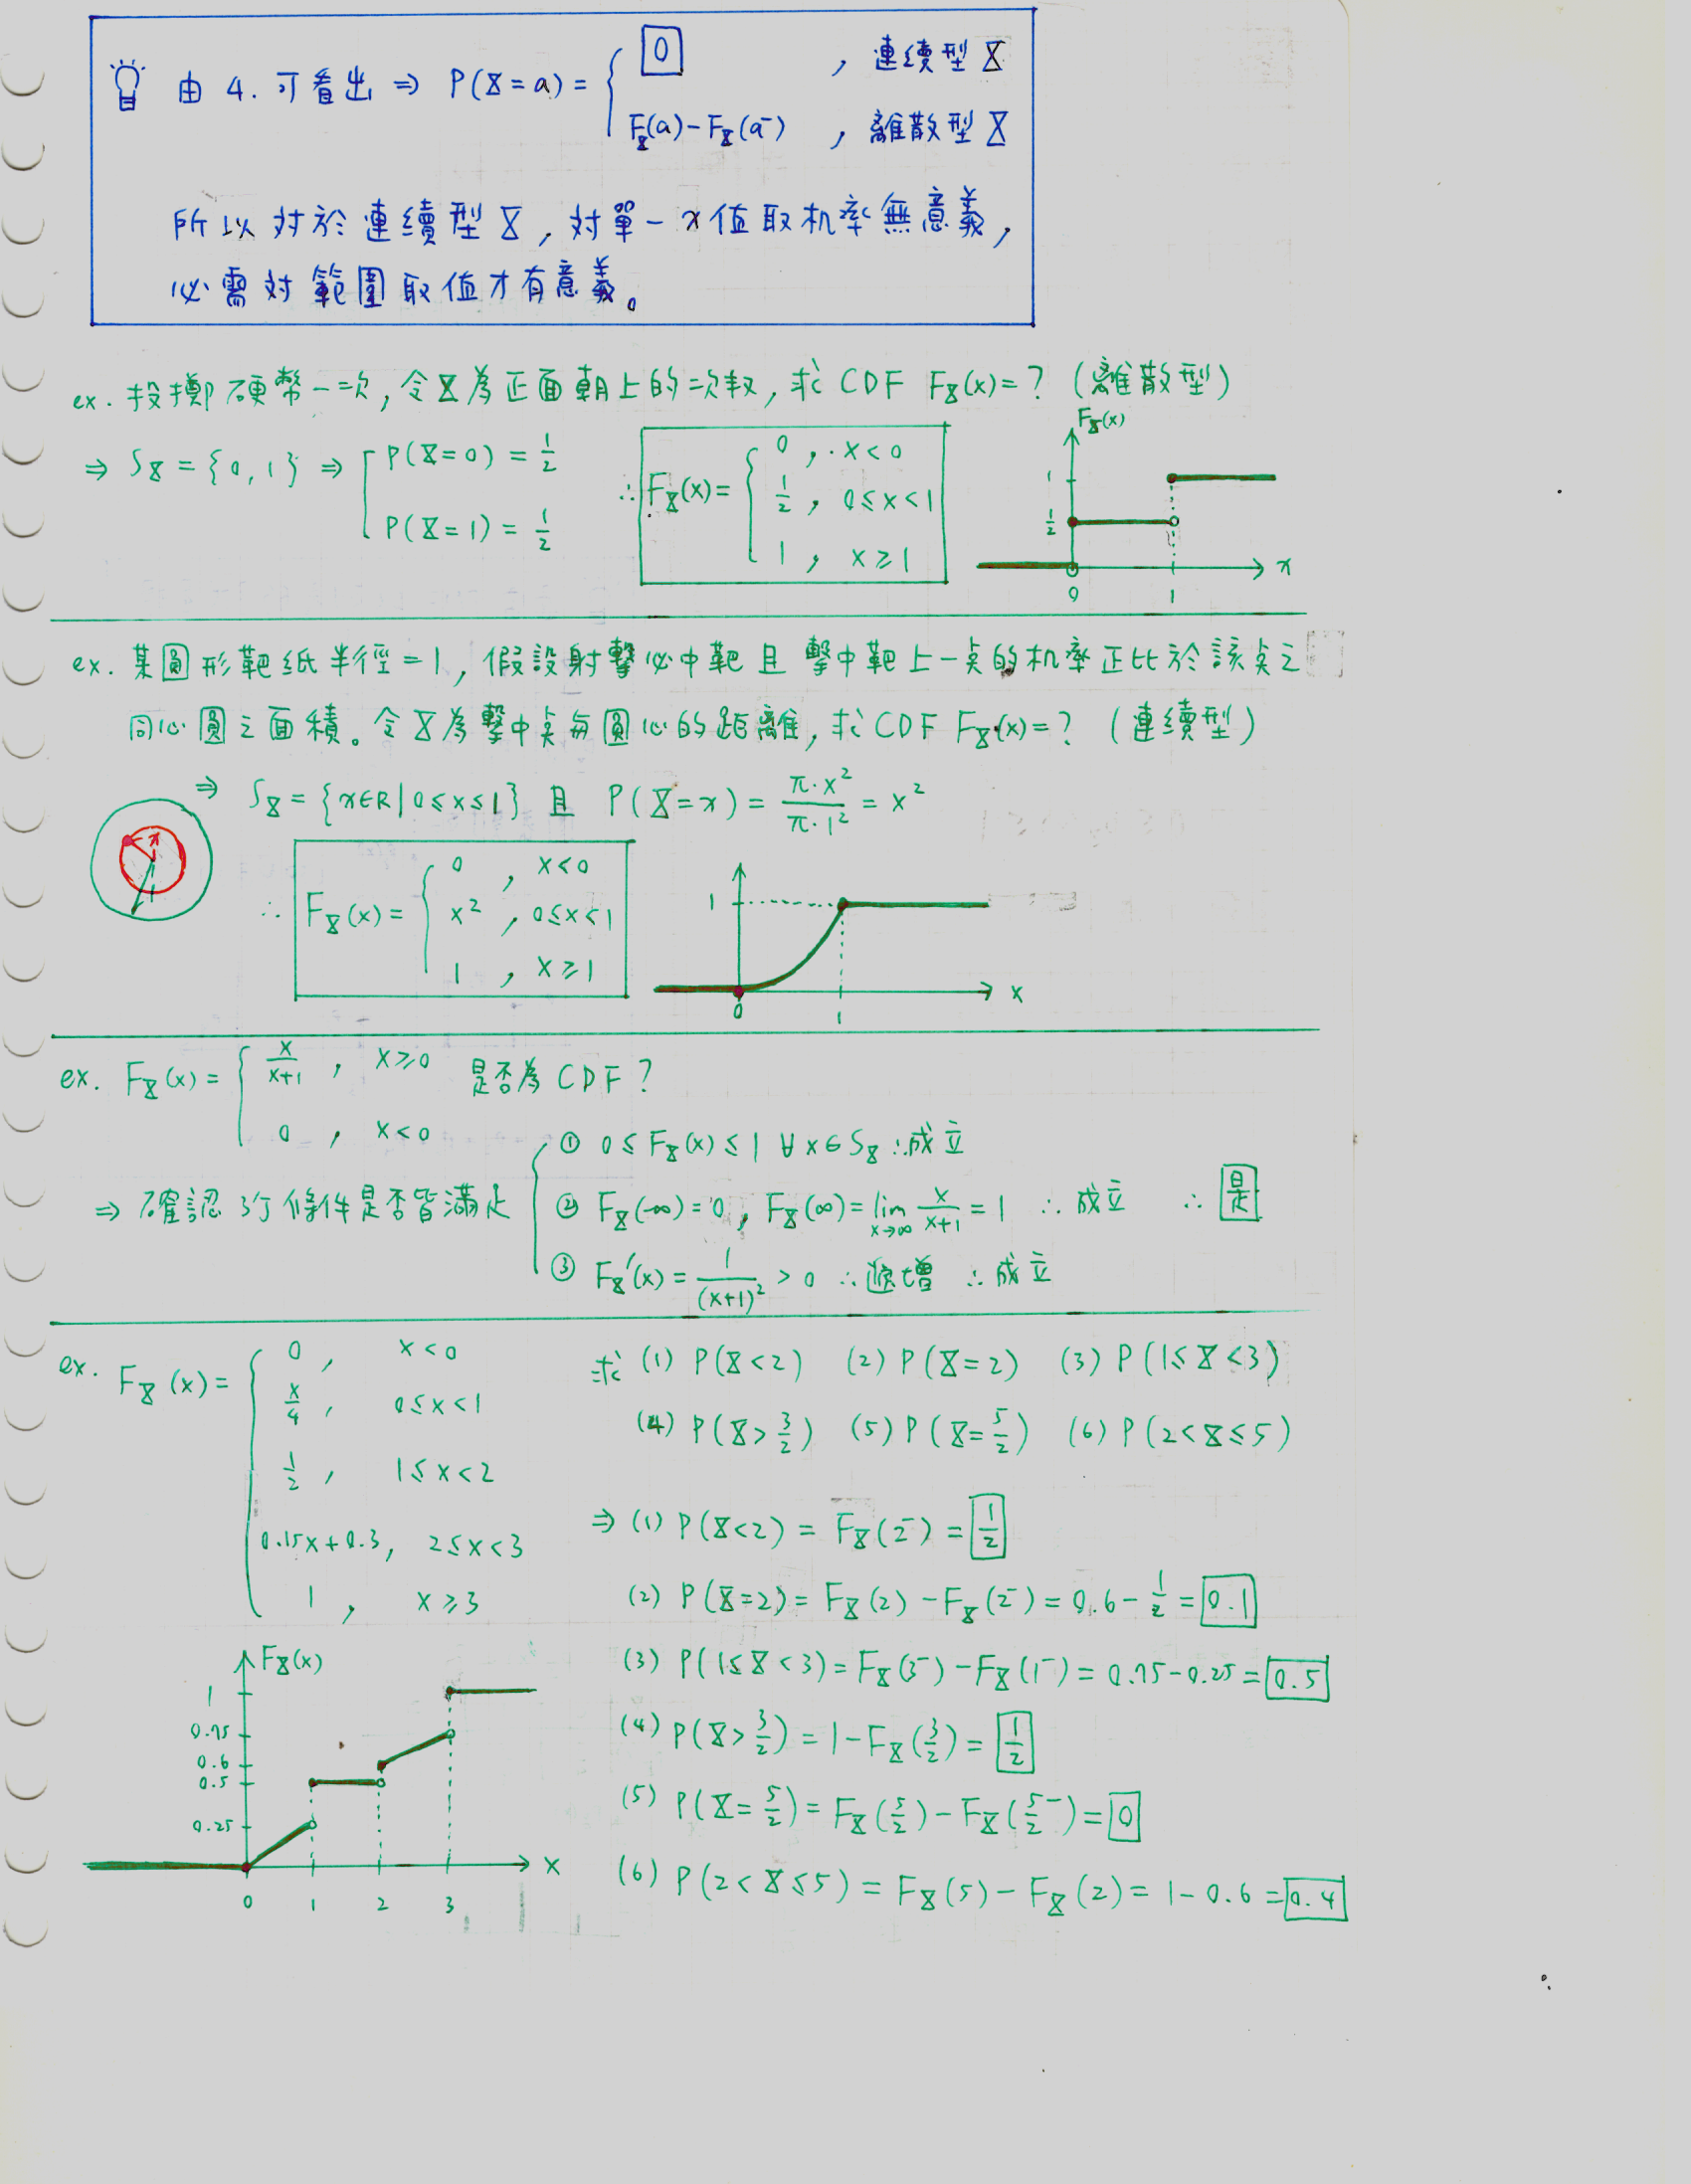 由 4. 可看出 ⇒ P(X=a) = { 0 , 連續型 X
F_X(a) - F_X(a⁻) , 離散型 X
所以対於連續型 X, 対單一 x 值取机率無意義,
必需対範圍取值才有意義。
ex. 投擲硬幣一次, 令 X 為正面朝上的次數, 求 CDF F_X(x) = ? (離散型)
⇒ S_X = {0, 1} ⇒ [ P(X=0) = 1/2
P(X=1) = 1/2
∴ F_X(x) = { 0 , x<0
1/2 , 0≤x<1
1 , x≥1
F_X(x)
1
1/2
0 1 x
ex. 某圓形靶紙半徑=1, 假設射擊必中靶且擊中靶上一点的机率正比於該点之
同心圓之面積。令 X 為擊中点與圓心的距離, 求 CDF F_X(x) = ? (連續型)
⇒ S_X = {x∈R | 0≤x≤1} 且 P(X=x) = π·x²/π·1² = x²
x
1
∴ F_X(x) = { 0 , x<0
x² , 0≤x<1
1 , x≥1
1
0 1 x
ex. F_X(x) = { x/(x+1) , x≥0 是否為 CDF?
0 , x<0
⇒ 確認 3個條件是否皆滿足
① 0≤F_X(x)≤1 ∀x∈S_X ∴成立
② F_X(-∞)=0, F_X(∞)= lim x→∞ x/(x+1) = 1 ∴成立 ∴ 是
③ F_X'(x) = 1/(x+1)² > 0 ∴遞增 ∴成立
ex. F_X(x) = { 0 , x<0
x/4 , 0≤x<1
1/2 , 1≤x<2
0.15x+0.3, 2≤x<3
1 , x≥3
求 (1) P(X<2) (2) P(X=2) (3) P(1≤X<3)
(4) P(X>3/2) (5) P(X=5/2) (6) P(2<X≤5)
⇒ (1) P(X<2) = F_X(2⁻) = 1/2
(2) P(X=2) = F_X(2) - F_X(2⁻) = 0.6 - 1/2 = 0.1
(3) P(1≤X<3) = F_X(3⁻) - F_X(1⁻) = 0.75 - 0.25 = 0.5
(4) P(X>3/2) = 1 - F_X(3/2) = 1/2
(5) P(X=5/2) = F_X(5/2) - F_X(5/2⁻) = 0
(6) P(2<X≤5) = F_X(5) - F_X(2) = 1 - 0.6 = 0.4
F_X(x)
1
0.75
0.6
0.5
0.25
0 1 2 3 x